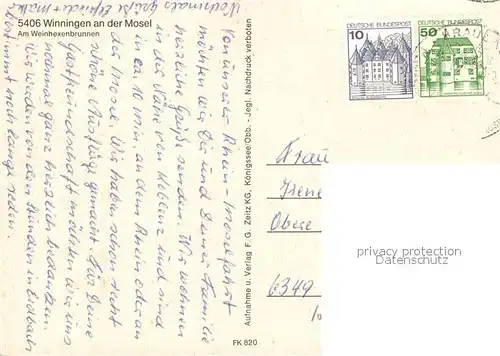 Nochmals Grüße Elfriede +
5406 Winningen an der Mosel
Am Weinhexenbrunnen
Von unserer Rhein-Moselfahrt
möchten wir Dir und Deiner Familie
herzliche Grüße senden. Wir wohnen
in der Nähe von Koblenz und sind
in ca. 10 min. an dem Rhein oder an
der Mosel. Wir haben schon sehr
schöne Ausflüge gemacht. Für Deine
Gastfreundschaft möchten wir uns
nochmal ganz herzlich bedanken.
Wir werden von den Stunden in
bestimmt noch lange reden.
Aufnahme u. Verlag F. G. Zeitz KG., Königssee/Obb. - Jegl. Nachdruck verboten
FK 820
DEUTSCHE BUNDESPOST
10
DEUTSCHE BUNDESPOST
50
Frau
Irene
Obere
6349
privacy protection
Datenschutz